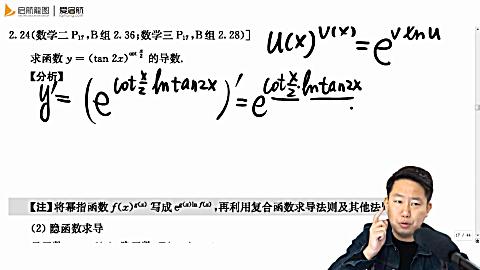 启航龙图 | 爱启航
2.24(数学二 P₁₇,B组 2.36;数学三 P₁₇,B组 2.28)]
u(x)^v(x) = e^v ln u
求函数 y = (tan 2x)^cot x/2 的导数.
【分析】
y' = (e^cot x/2 ln tan2x)' = e^cot x/2 · ln tan2x ·
【注】将幂指函数 f(x)^g(x) 写成 e^g(x)ln f(x),再利用复合函数求导法则及其他法
(2) 隐函数求导
17 / 44